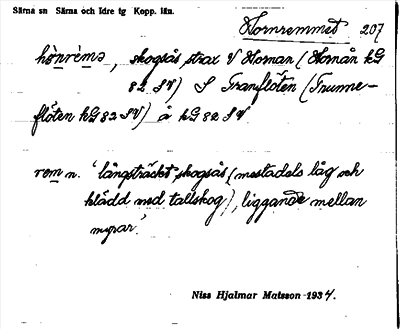 Särna sn Särna och Idre tg Kopp. län.
Hornremmet 207
hòn̲rèmə, skogsås strax V Hornan (Hornån kG
82 SV) S Tranflöten (Trunne-
flöten kG 82 SV) å kG 82 SV
rem n. 'långsträckt skogsås (mestadels låg och
klädd med tallskog), liggande mellan
myrar.'
Niss Hjalmar Matsson 1934.